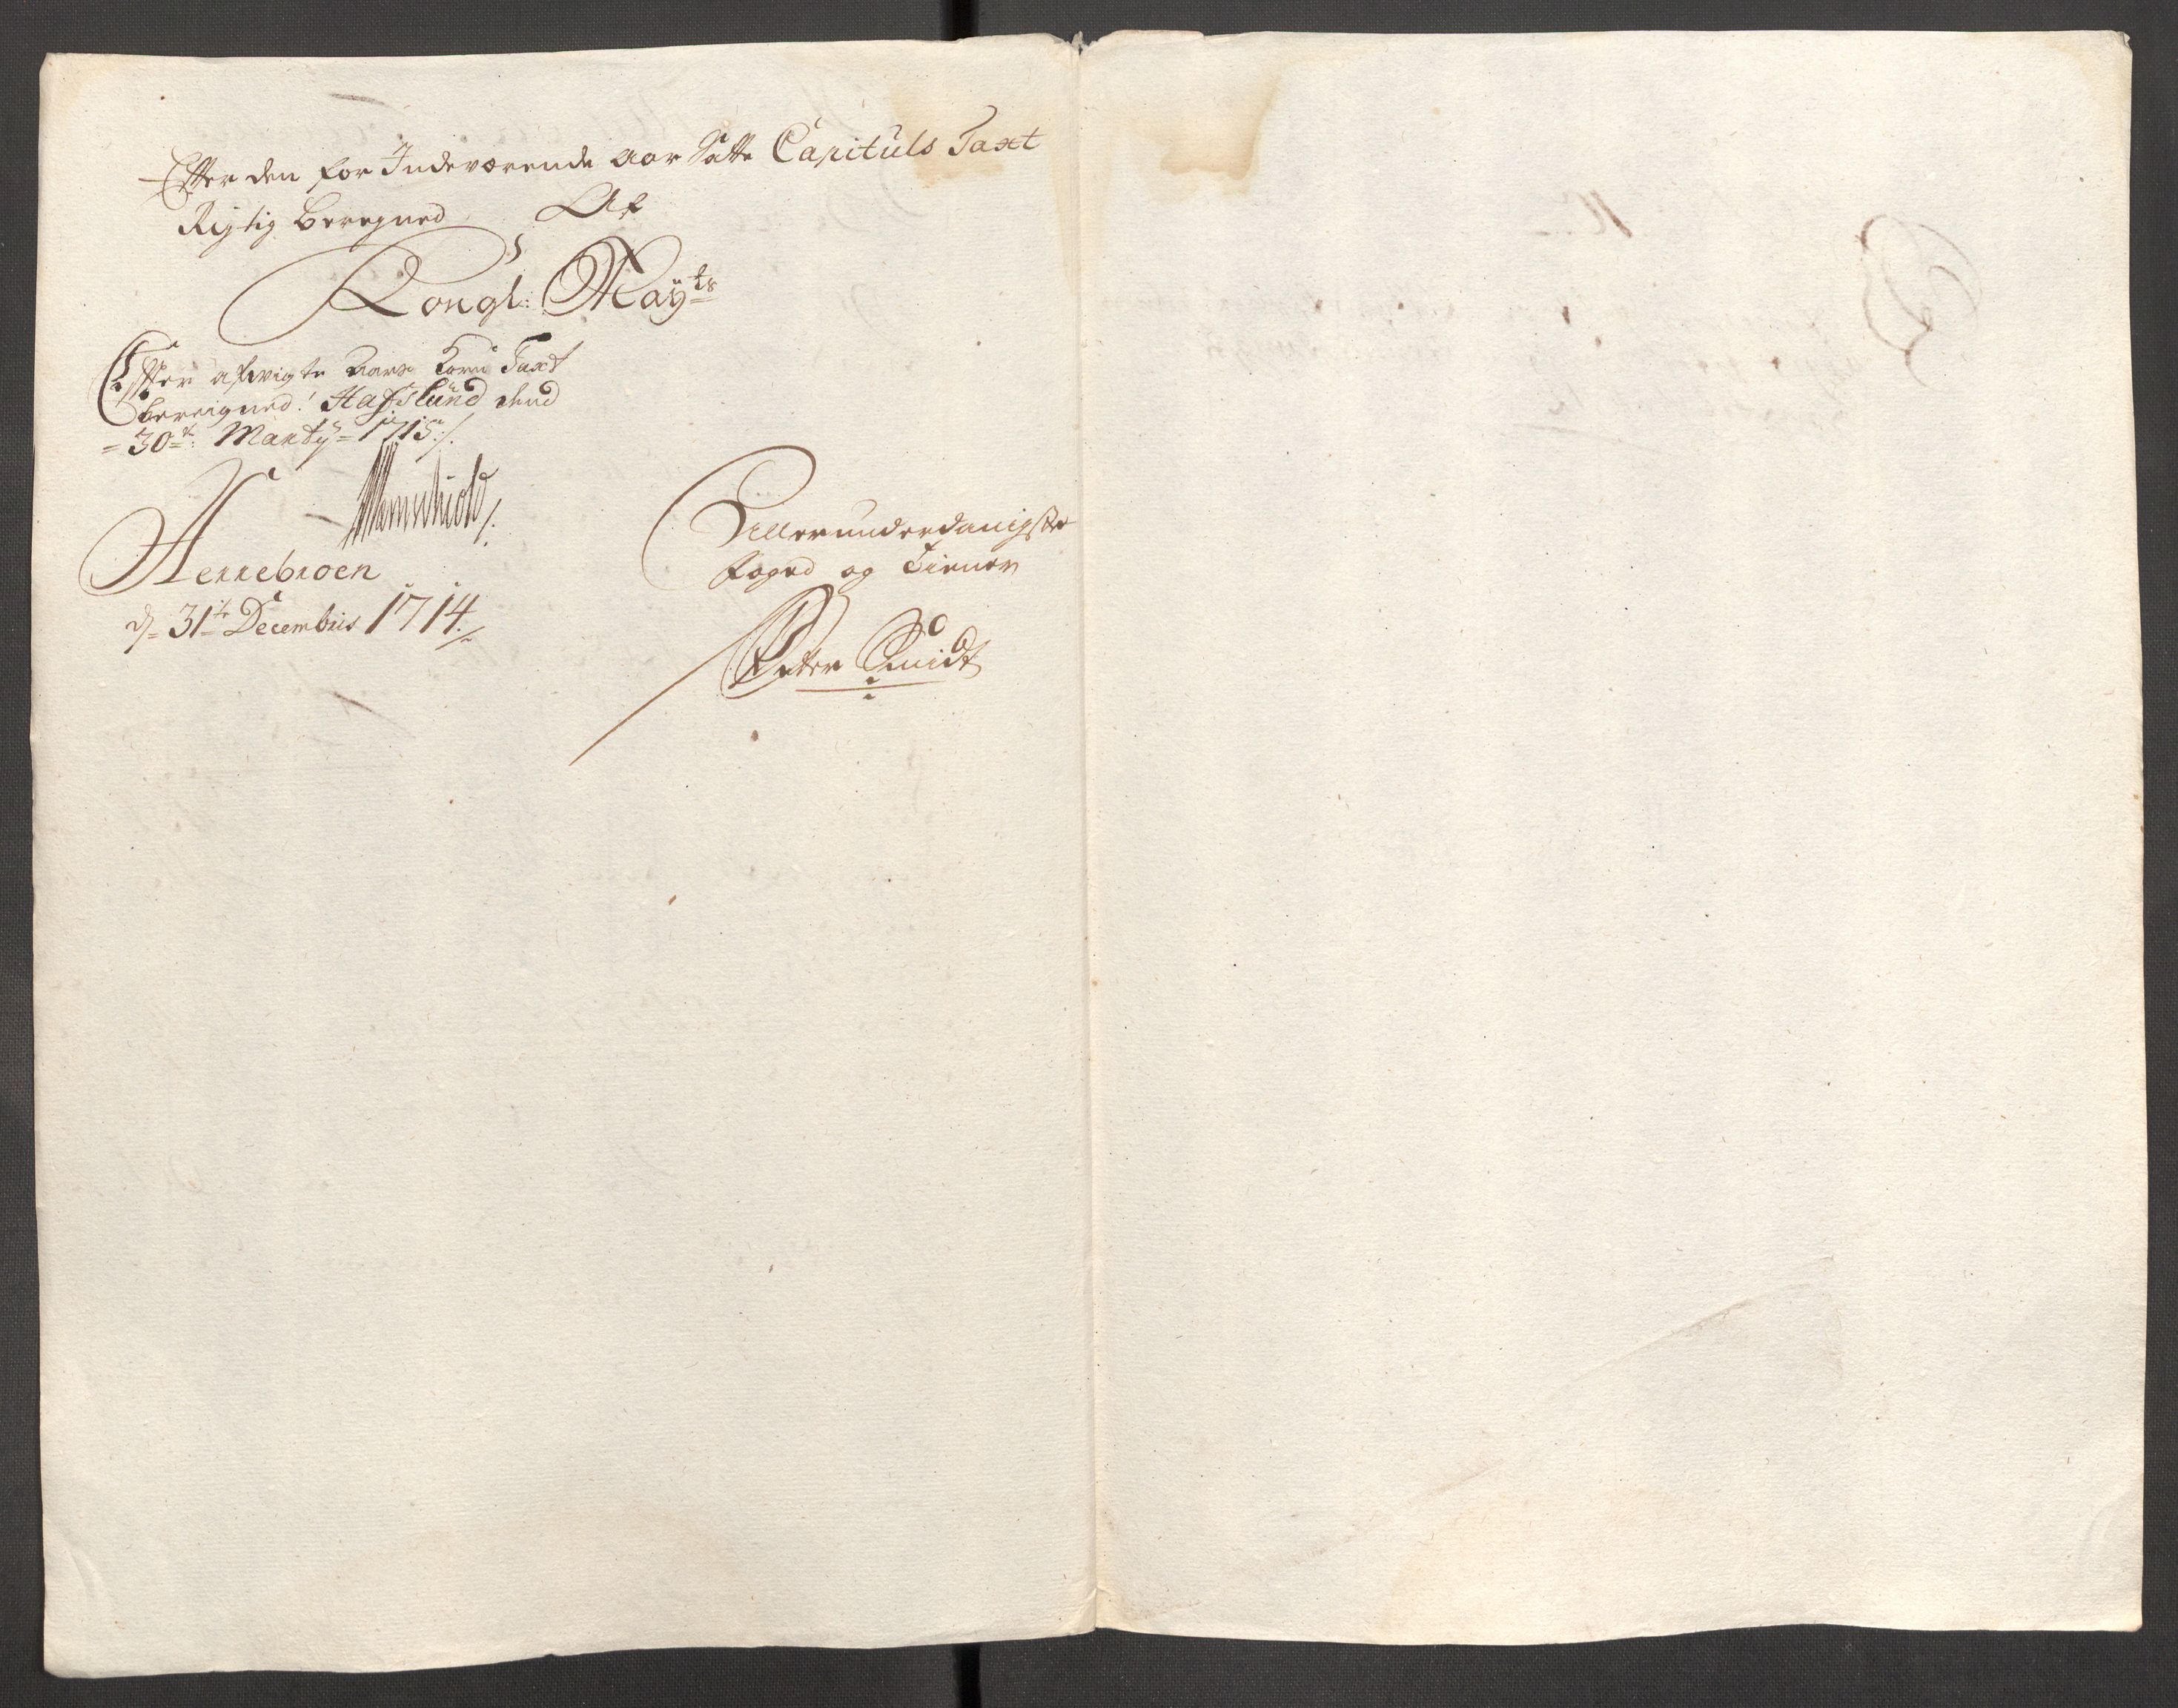 Efter den for Indeværende Aar Satte Capituls Taxt
Rigtig beregned Af
Kongl: Mayts
Efter afvigte Aars Korn Taxt
bereigned! Hafslund dend
= 30te: Marty = 1715 ./.
Wernschiold /.
Herrebroen
d= 31te Decembris 1714 ./.
Allerunderdanigste
foged og Tiener
Peter Smidt